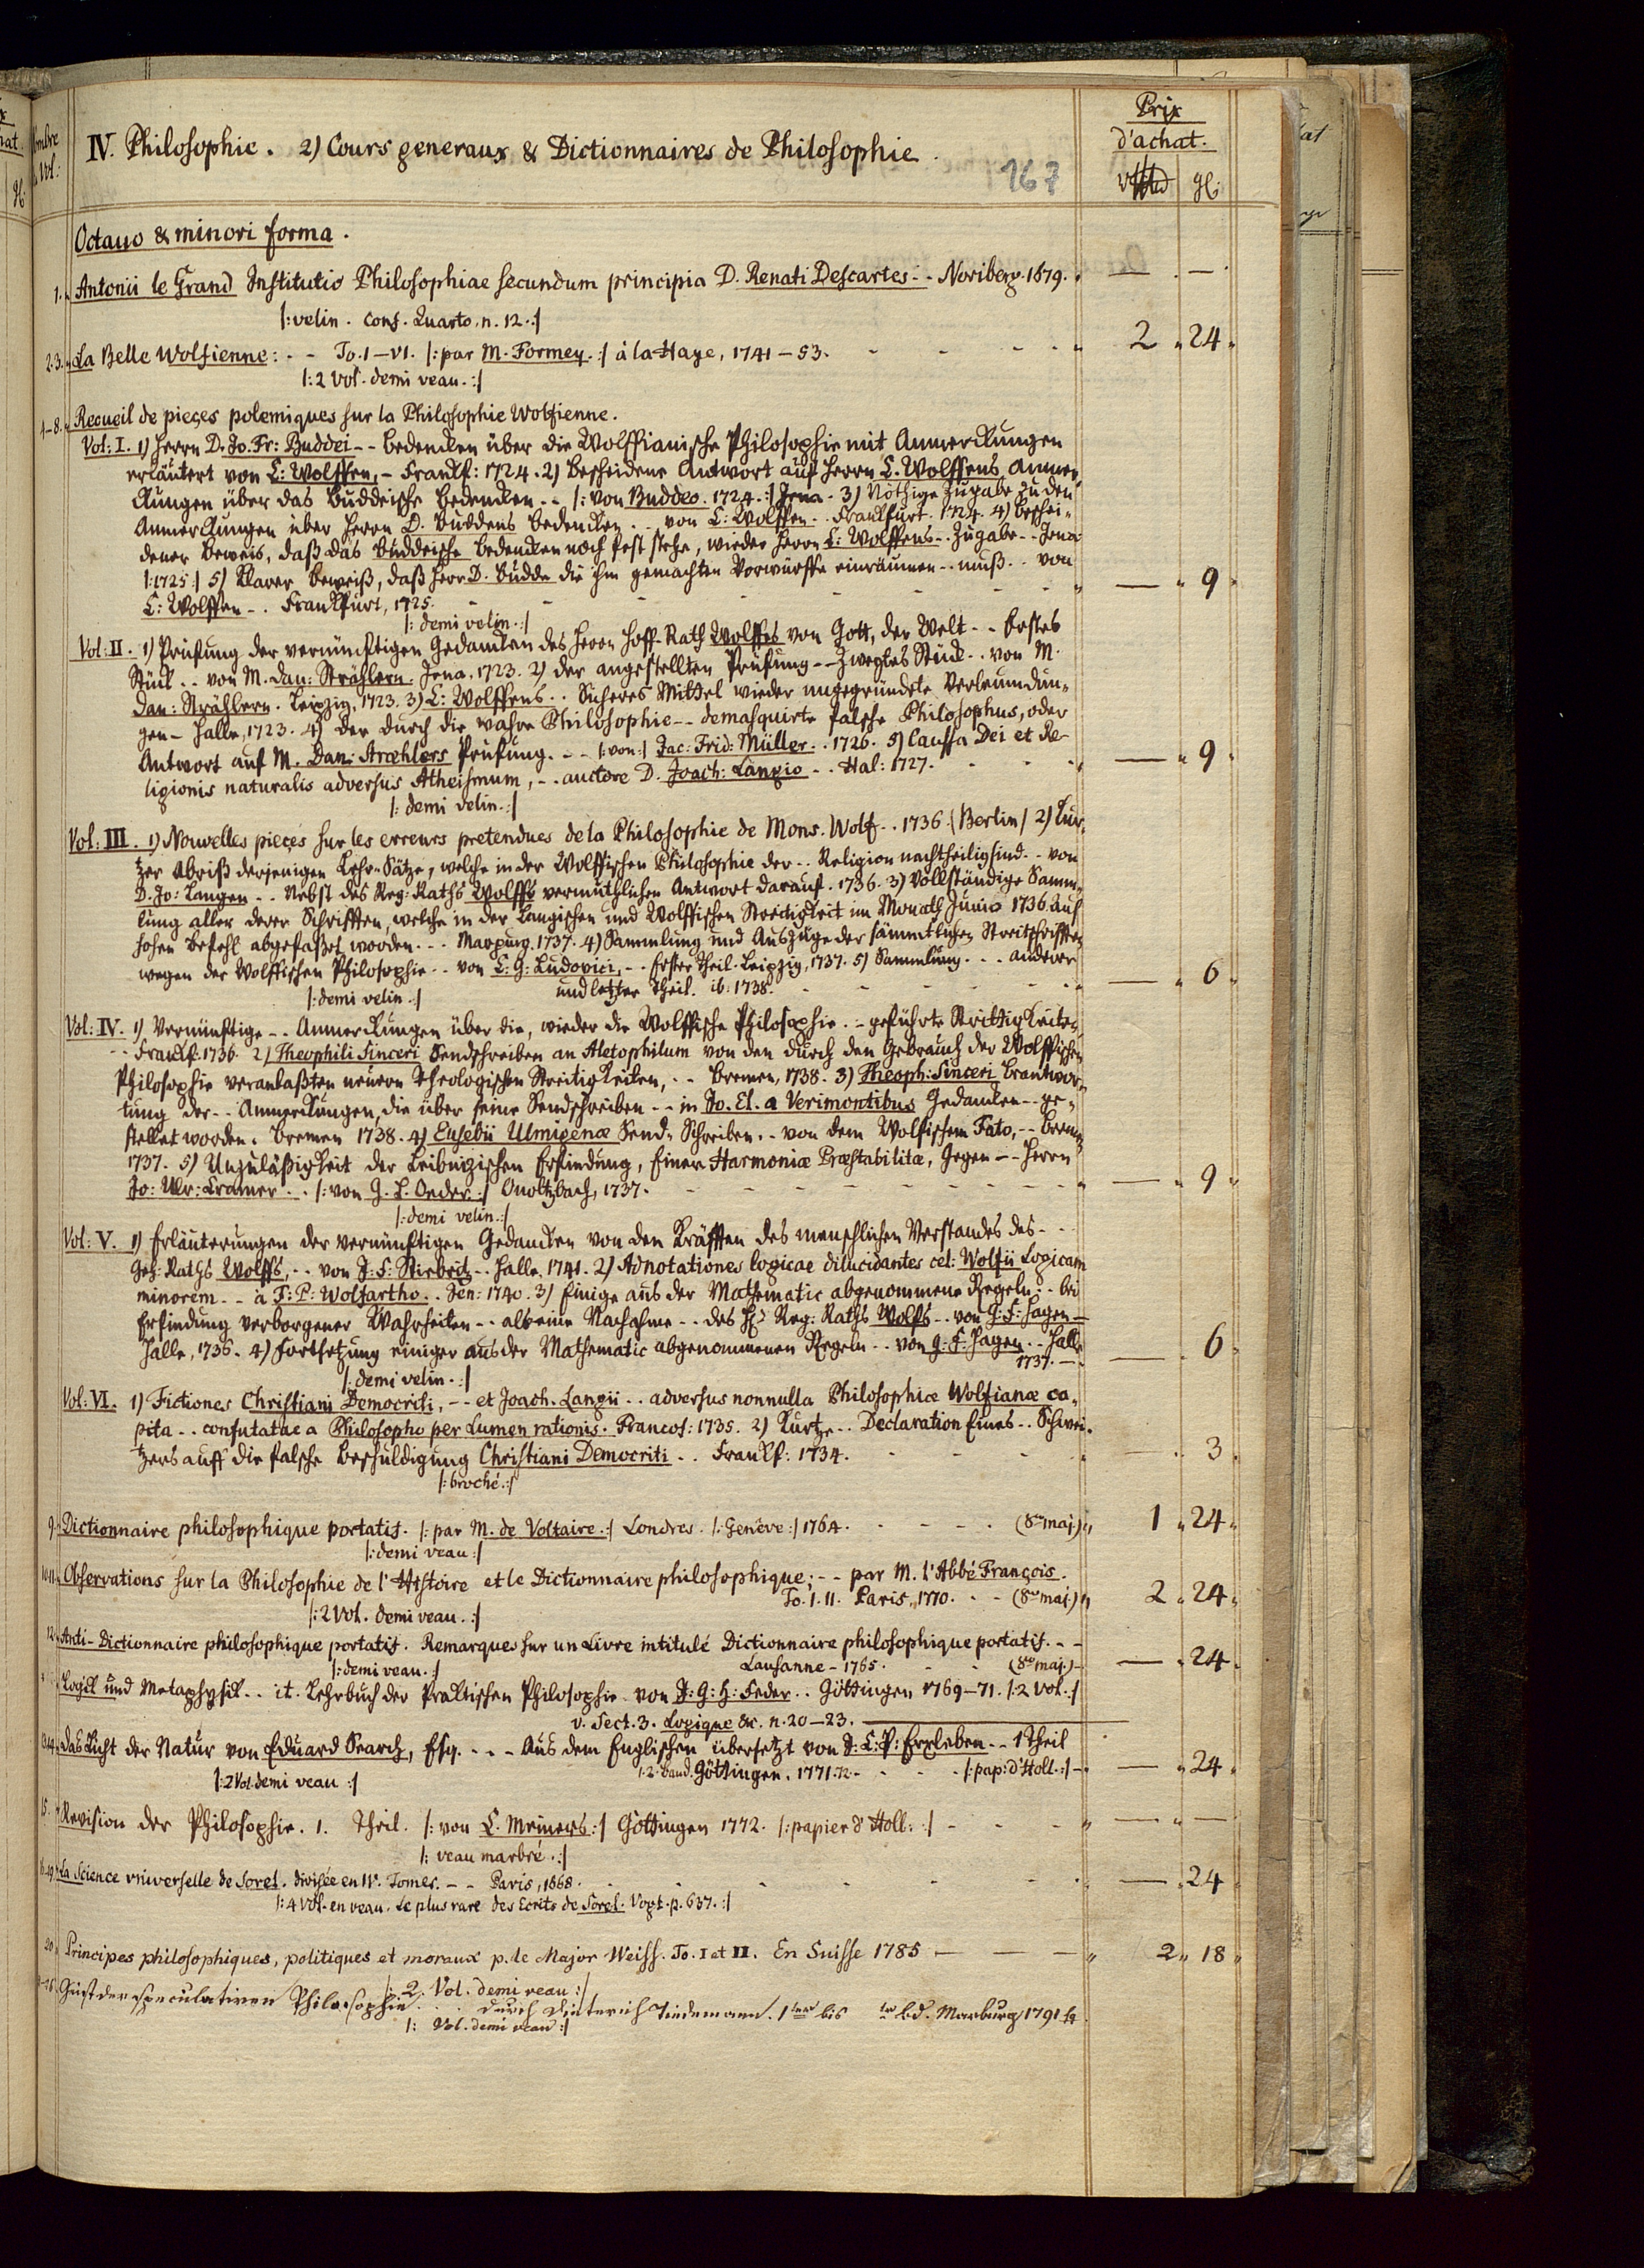 IV. Philosophie. 2) Cours generaux & Dictionnaires de Philosophie.
167
Prix
d'achat.
gl:
Octauo & minori forma.
1. Antonii le Grand Institutio Philosophiae secundum principia D. Renati Descartes - - Noriberg. 1679. — —
|: velin. Conf. Quarto. n. 12. :|
2.3. La Belle Wolfienne: - - To. I—VI. |: par M. Formey. :| à la Haye, 1741—53. 2 24
|: 2 Vol. demi veau. :|
4—8. Recueil de pieces polemiques sur la Philosophie Wolfienne.
Vol: I. 1) Herrn D. Jo. Fr: Buddei - - Bedencken über die Wolffianische Philosophie mit Anmerckungen
erläutert von C: Wolffen, - Franckf: 1724. 2) Bescheidene Antwort auf Herrn C. Wolffens Anmer-
ckungen über das Buddeische Bedencken - - |: von Buddeo. 1724. :| Jena. 3) Nöthige Zugabe zu den
Anmerckungen über Herrn D. Buddens Bedencken - - von C: Wolffen - - Franckfurt. 1724. 4) Beschei-
dener Beweis, daß das Buddeische Bedencken noch fest stehe, wieder Herrn C: Wolffens - - Zugabe - - Jena
|: 1725 :| 5) Klarer Beweiß, daß Herr D. Budde die ihm gemachten Vorwürffe einräumen - - muß - - von
C: Wolffen - - Franckfurt, 1725. — 9
|: demi velin. :|
Vol: II. 1) Prüfung der vernünftigen Gedancken des Herrn Hoff-Rath Wolffes von Gott, der Welt - - Erstes
Stück - - von M. Dan: Strählern. Jena. 1723. 2) der angestellten Prüfung - - Zweytes Stück - - von M.
Dan: Strählern. Leipzig, 1723. 3) C: Wolffens - - Sicheres Mittel wieder ungegründete Verleumdun-
gen - Halle, 1723. 4) Der durch die wahre Philosophie - - demasquirte falsche Philosophus, oder
Antwort auf M. Dan: Stræhlers Prüfung. - - |: von :| Jac: Frid: Müller - - 1726. 5) Caussa Dei et Re-
ligionis naturalis adversus Atheismum, - - auctore D. Joach: Langio - - Hal: 1727. — 9
|: demi velin. :|
Vol: III. 1) Nouvelles pieces sur les erreurs pretendues de la Philosophie de Mons. Wolf - - 1736. (Berlin) 2) Kur-
tzer Abriß derjenigen Lehr-Sätze, welche in der Wolffischen Philosophie der - - Religion nachtheilig sind - - von
D. Jo: Langen - - Nebst des Reg: Raths Wolffs vermuthlichen Antwort darauf. 1736. 3) Vollständige Samm-
lung aller derer Schrifften, welche in der Langischen und Wolffischen Streitigkeit im Monath Junio 1736. auf
hohen Befehl abgefaßet worden - - - Marpurg. 1737. 4) Sammlung und Auszüge der sämmtlichen Streitschrifften
wegen der Wolffischen Philosophie - - von C. G: Ludovici, - - Erster Theil. Leipzig, 1737. 5) Sammlung - - - anderer
und letzter Theil. ib. 1738. — 6
|: demi velin. :|
Vol: IV. 1) Vernünftige - - Anmerckungen über die, wieder die Wolffische Philosophie - - geführte Strittigkeiten
- - Franckf. 1736. 2) Theophili Sinceri Sendschreiben an Aletophilum von den durch den Gebrauch der Wolffischen
Philosophie veranlaßten neuern Theologischen Streitigkeiten, - - Bremen, 1738. 3) Theoph: Sinceri Beantwor-
tung der - - Anmerckungen, die über seine Sendschreiben - - in Jo. El. a Verimontibus Gedancken - - ge-
stellet worden. Bremen 1738. 4) Eusebii Ulmigenæ Send-Schreiben - - von dem Wolfischem Fato, - - Bremen
1737. 5) Unzuläßigkeit der Leibnizischen Erfindung, Einer Harmoniæ Præstabilitæ, Gegen - - Herrn
Jo: Ulr: Cramer - - |: von G. L. Oeder :| Onoltzbach, 1737. — 9
|: demi velin. :|
Vol: V. 1) Erläuterungen der vernünftigen Gedancken von den Kräfften des menschlichen Verstandes des - -
Geh: Raths Wolffs, - - von J: F: Stiebritz - - Halle. 1741. 2) Adnotationes logicae dilucidantes cel: Wolfii Logicam
minorem - - a F: P: Wolfartho - - Jen: 1740. 3) Einige aus der Mathematic abgenommene Regeln - - bei
Erfindung verborgener Wahrheiten - - als eine Nachahme - - des H. Reg: Raths Wolfs - - von G: F: Hagen —
Halle, 1736. 4) Fortsetzung einiger aus der Mathematic abgenommenen Regeln - - von G: F: Hagen - - Halle
1737. — 6
|: demi velin. :|
Vol: VI. 1) Fictiones Christiani Democriti, - - et Joach. Langii - - adversus nonnulla Philosophiæ Wolfianæ ca-
pita - - confutatae a Philosopho per Lumen rationis. Francof: 1735. 2) Kurtze - - Declaration Eines - - Schwei-
tzers auff die falsche Beschuldigung Christiani Democriti - - Franckf: 1734. — 3
|: broché. :|
9. Dictionnaire philosophique portatif. |: par M. de Voltaire. :| Londres. |: Genève :| 1764. (8vo maj.) 1 24
|: demi veau :|
10.11. Observations sur la Philosophie de l'Histoire et le Dictionnaire philosophique; - - par M. l'Abbé François.
To. I. II. Paris, 1770. (8vo maj.) 2 24
|: 2 Vol. demi veau. :|
12. Anti-Dictionnaire philosophique portatif. Remarques sur un Livre intitulé Dictionnaire philosophique portatif. - -
Lausanne - 1765. (8vo maj.) — 24
|: demi veau. :|
Logick und Metaphysick - - it. Lehrbuch der Praktischen Philosophie von J: G: H: Feder - - Göttingen 1769—71. |: 2 Vol. :|
v. Sect. 3. Logique &c. n. 20—23.
13.14. Das Licht der Natur von Eduard Search, Esq. - - - Aus dem Englischen übersetzt von J: C: P: Erxleben - - 1 Theil
1. 2. Band. Göttingen, 1771.72. |: pap: d'Holl. :| — 24
|: 2 Vol. demi veau :|
15. Revision der Philosophie. 1. Theil. |: von C. Meiners :| Göttingen 1772. |: papier d'Holl: :| — —
|: veau marbré. :|
16-19. La Science vniverselle de Sorel. divisée en IV. Tomes. - - Paris, 1668. — 24
|: 4 Vol. en veau. Le plus rare des Ecrits de Sorel. Vogt. p. 637. :|
20. Principes philosophiques, politiques et moraux p. le Major Weiss. To. I et II. En Suisse 1785 — 2 18
|: 2. Vol. demi veau :|
Geist der speculativen Philosophie . . . durch Dieterich Tiedemann. 1ter bis ter bd. Marburg 1791
|: Vol. demi veau :|